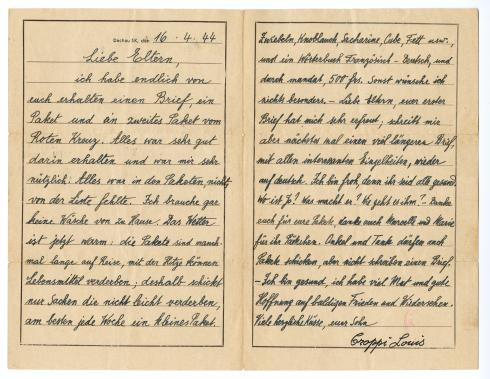 Dachau 3K, den 16 · 4 · 44
Liebe Eltern,
ich habe endlich von
euch erhalten einen Brief, ein
Paket und ein zweites Paket vom
Roten Kreuz. Alles war sehr gut
darin erhalten und war mir sehr
nützlich. Alles war in den Paketen, nichts
von der Liste fehlte. Ich brauche gar
keine Wäsche von zu Hause. Das Wetter
ist jetzt warm: die Pakete sind manch-
mal lange auf Reise, mit der Hitze können
Lebensmittel verderben; deshalb schickt
nur Sachen die nicht leicht verderben,
am besten jede Woche ein kleines Paket.
Zwiebeln, Knoblauch, Saccharine, Cube, Fett usw.,
und ein Wörterbuch Französisch-Deutsch, und
durch mandat, 500 frs. Sonst wünsche ich
nichts besonders. – Liebe Eltern, euer erster
Brief hat mich sehr erfreut; schreibt mir
aber nächstes mal einen viel längeren Brief,
mit allen interessanten Einzelheiten, wieder
auf deutsch. Ich bin froh, denn ihr seid alle gesund.
Wo ist Jo? Was macht er? Wo geht es ihm? – Danke
euch für eure Pakete, danke auch Marcelle und Marie
für ihr Päkchen. Onkel und Tante dürfen auch
Pakete schicken, aber nicht schreiben einen Brief.
– Ich bin gesund, ich habe viel Mut und gute
Hoffnung auf baldigen Frieden und Wiedersehen.
Viele herzliche Küsse, euer Sohn
Croppi Louis